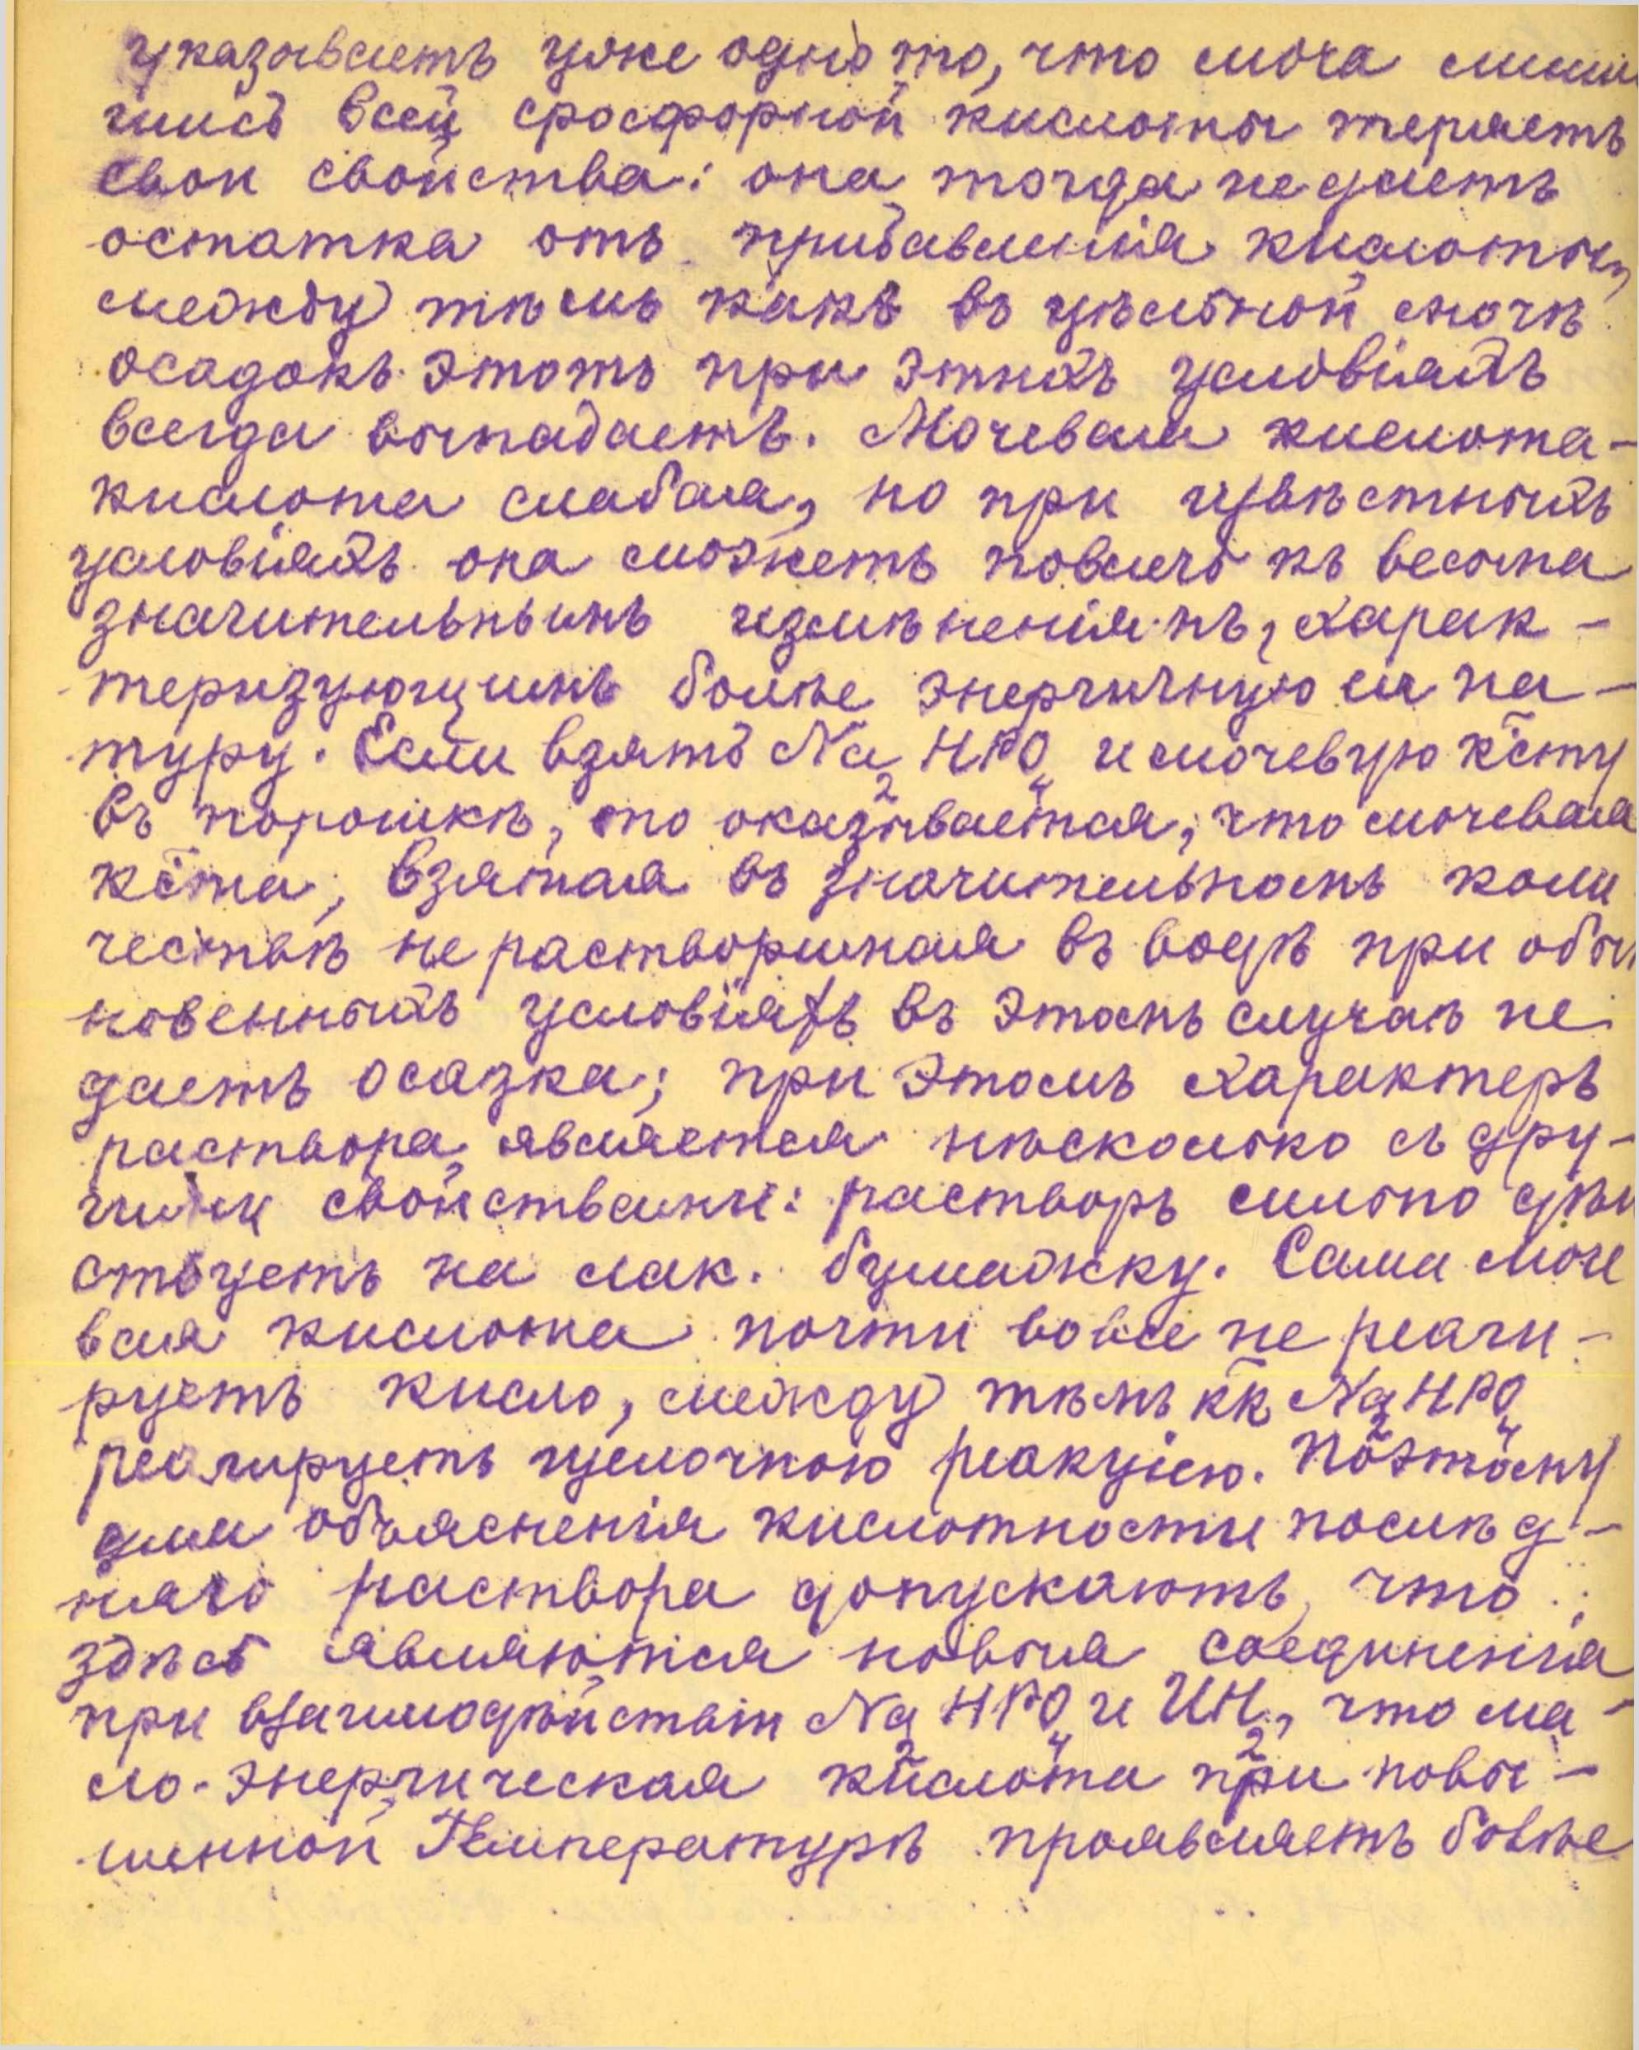 указываетъ уже одно то, что моча лиши
шись всей фросфорной кислоты теряетъ
свои свойства: она тогда не даетъ
остатка отъ прибавленія кислоты,
между тѣмъ какъ въ цѣльной мочѣ
осадокъ этотъ при этихъ условіяхъ
всегда выпадаетъ. Мочевая кислота –
кислота слабая, но при извѣстныхъ
условіяхъ она можетъ повлечь къ весьма
значительнымъ измѣненіямъ, харак –
теризующимъ болѣе энергичную ея на –
туру. Если взять Na2HPO4 и мочевую к̃сту
въ порошкѣ, то оказывается, что мочевая
к̃ста, взятая въ значительномъ коли
чествѣ не растворимая въ водѣ при обы
новенныхъ условіяхъ въ этомъ случаѣ не
даетъ осадка; при этомъ характеръ
раствора является нѣсколько съ дру –
гими свойствами: растворъ сильно дѣй
ствуетъ на лак. бумажку. Сама моче
вая кислота почти вовсе не реаги –
руетъ кисло, между тѣмъ к̃к Na2HPO4
реагируетъ щелочною реакціею. Поэтому
для объясненія кислотности послѣд –
няго раствора допускаютъ, что
здѣсь являются новыя соединенія
при взаимодѣйствіи Na2HPO4 и UH2, что ма –
ло-энергическая кислота при повы –
шенной температурѣ проявляетъ болѣе